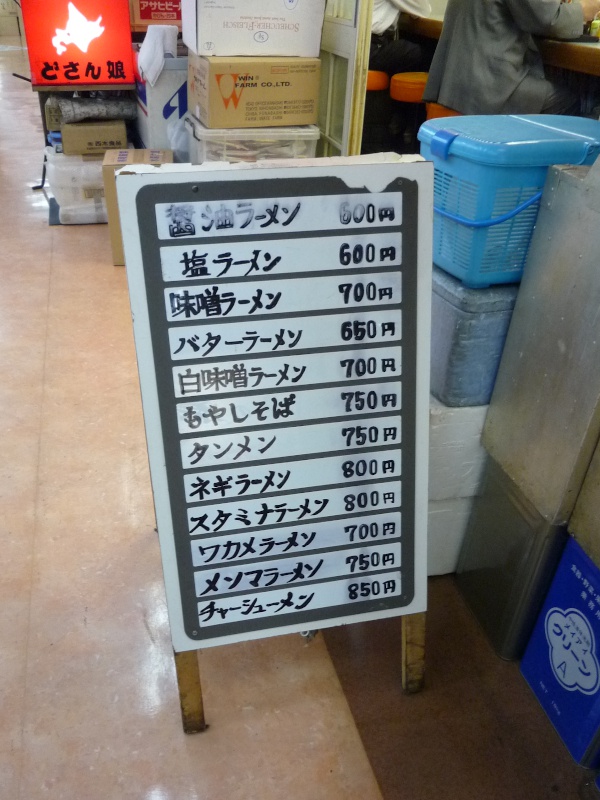 アサヒビール
SCHLEICHER-FLEISCH
WIN
FARM CO.,LTD.
どさん娘
醤油ラーメン 600円
塩ラーメン 600円
味噌ラーメン 700円
バターラーメン 650円
白味噌ラーメン 700円
もやしそば 750円
タンメン 750円
ネギラーメン 800円
スタミナラーメン 800円
ワカメラーメン 700円
メンマラーメン 750円
チャーシューメン 850円
メイアイ
クリーン
A